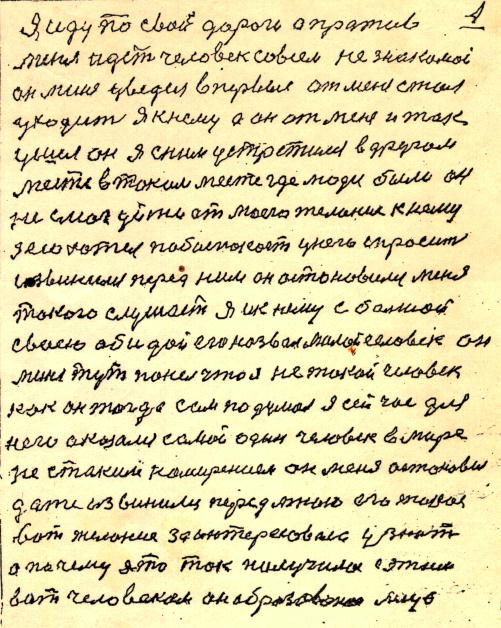 1
Я иду по свой дороги а пративо
меня идет человек совсем не знакомой
он миня уведел впервые от меня стал
уходит Я к нему а он от меня и так
ушел он Я сним устретился в другом
месте в таком месте где люди были он
не смог уйти от моего желание к нему
я его хотел побаспокоит у него спросит
извинился перед ним он астоновился меня
токого слушает Я и к нему с балшой
своею обидой его назвал малой человек он
миня тут понел что я не такой человек
как он тогда сам подумал я сейчас для
него оказался самой один человек в мире
не с таким намерением он меня остоновил
даже извинился передмною его такое
вот желание заинтересовала узнат
а почему это так палучился с этим
вот человеком он образовоное лицо